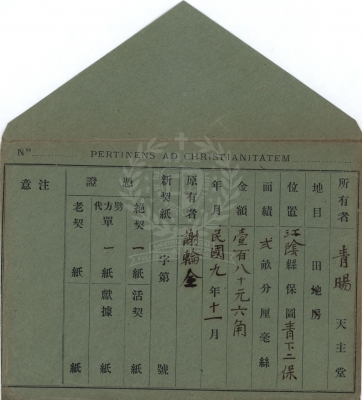 Nº
PERTINENS AD CHRISTIANITATEM
所有者 青暘 天主堂
地目 田地房
位置 江陰縣保圖青下二保
面績 弍畝分厘毫絲
金額 壹百八十元六角
年月 民國九年十一月
原有者 謝榆全
新契紙 字第 號
證 題
絕契一紙活契 紙
代方單一紙獻據 紙
老契 紙 紙
注意